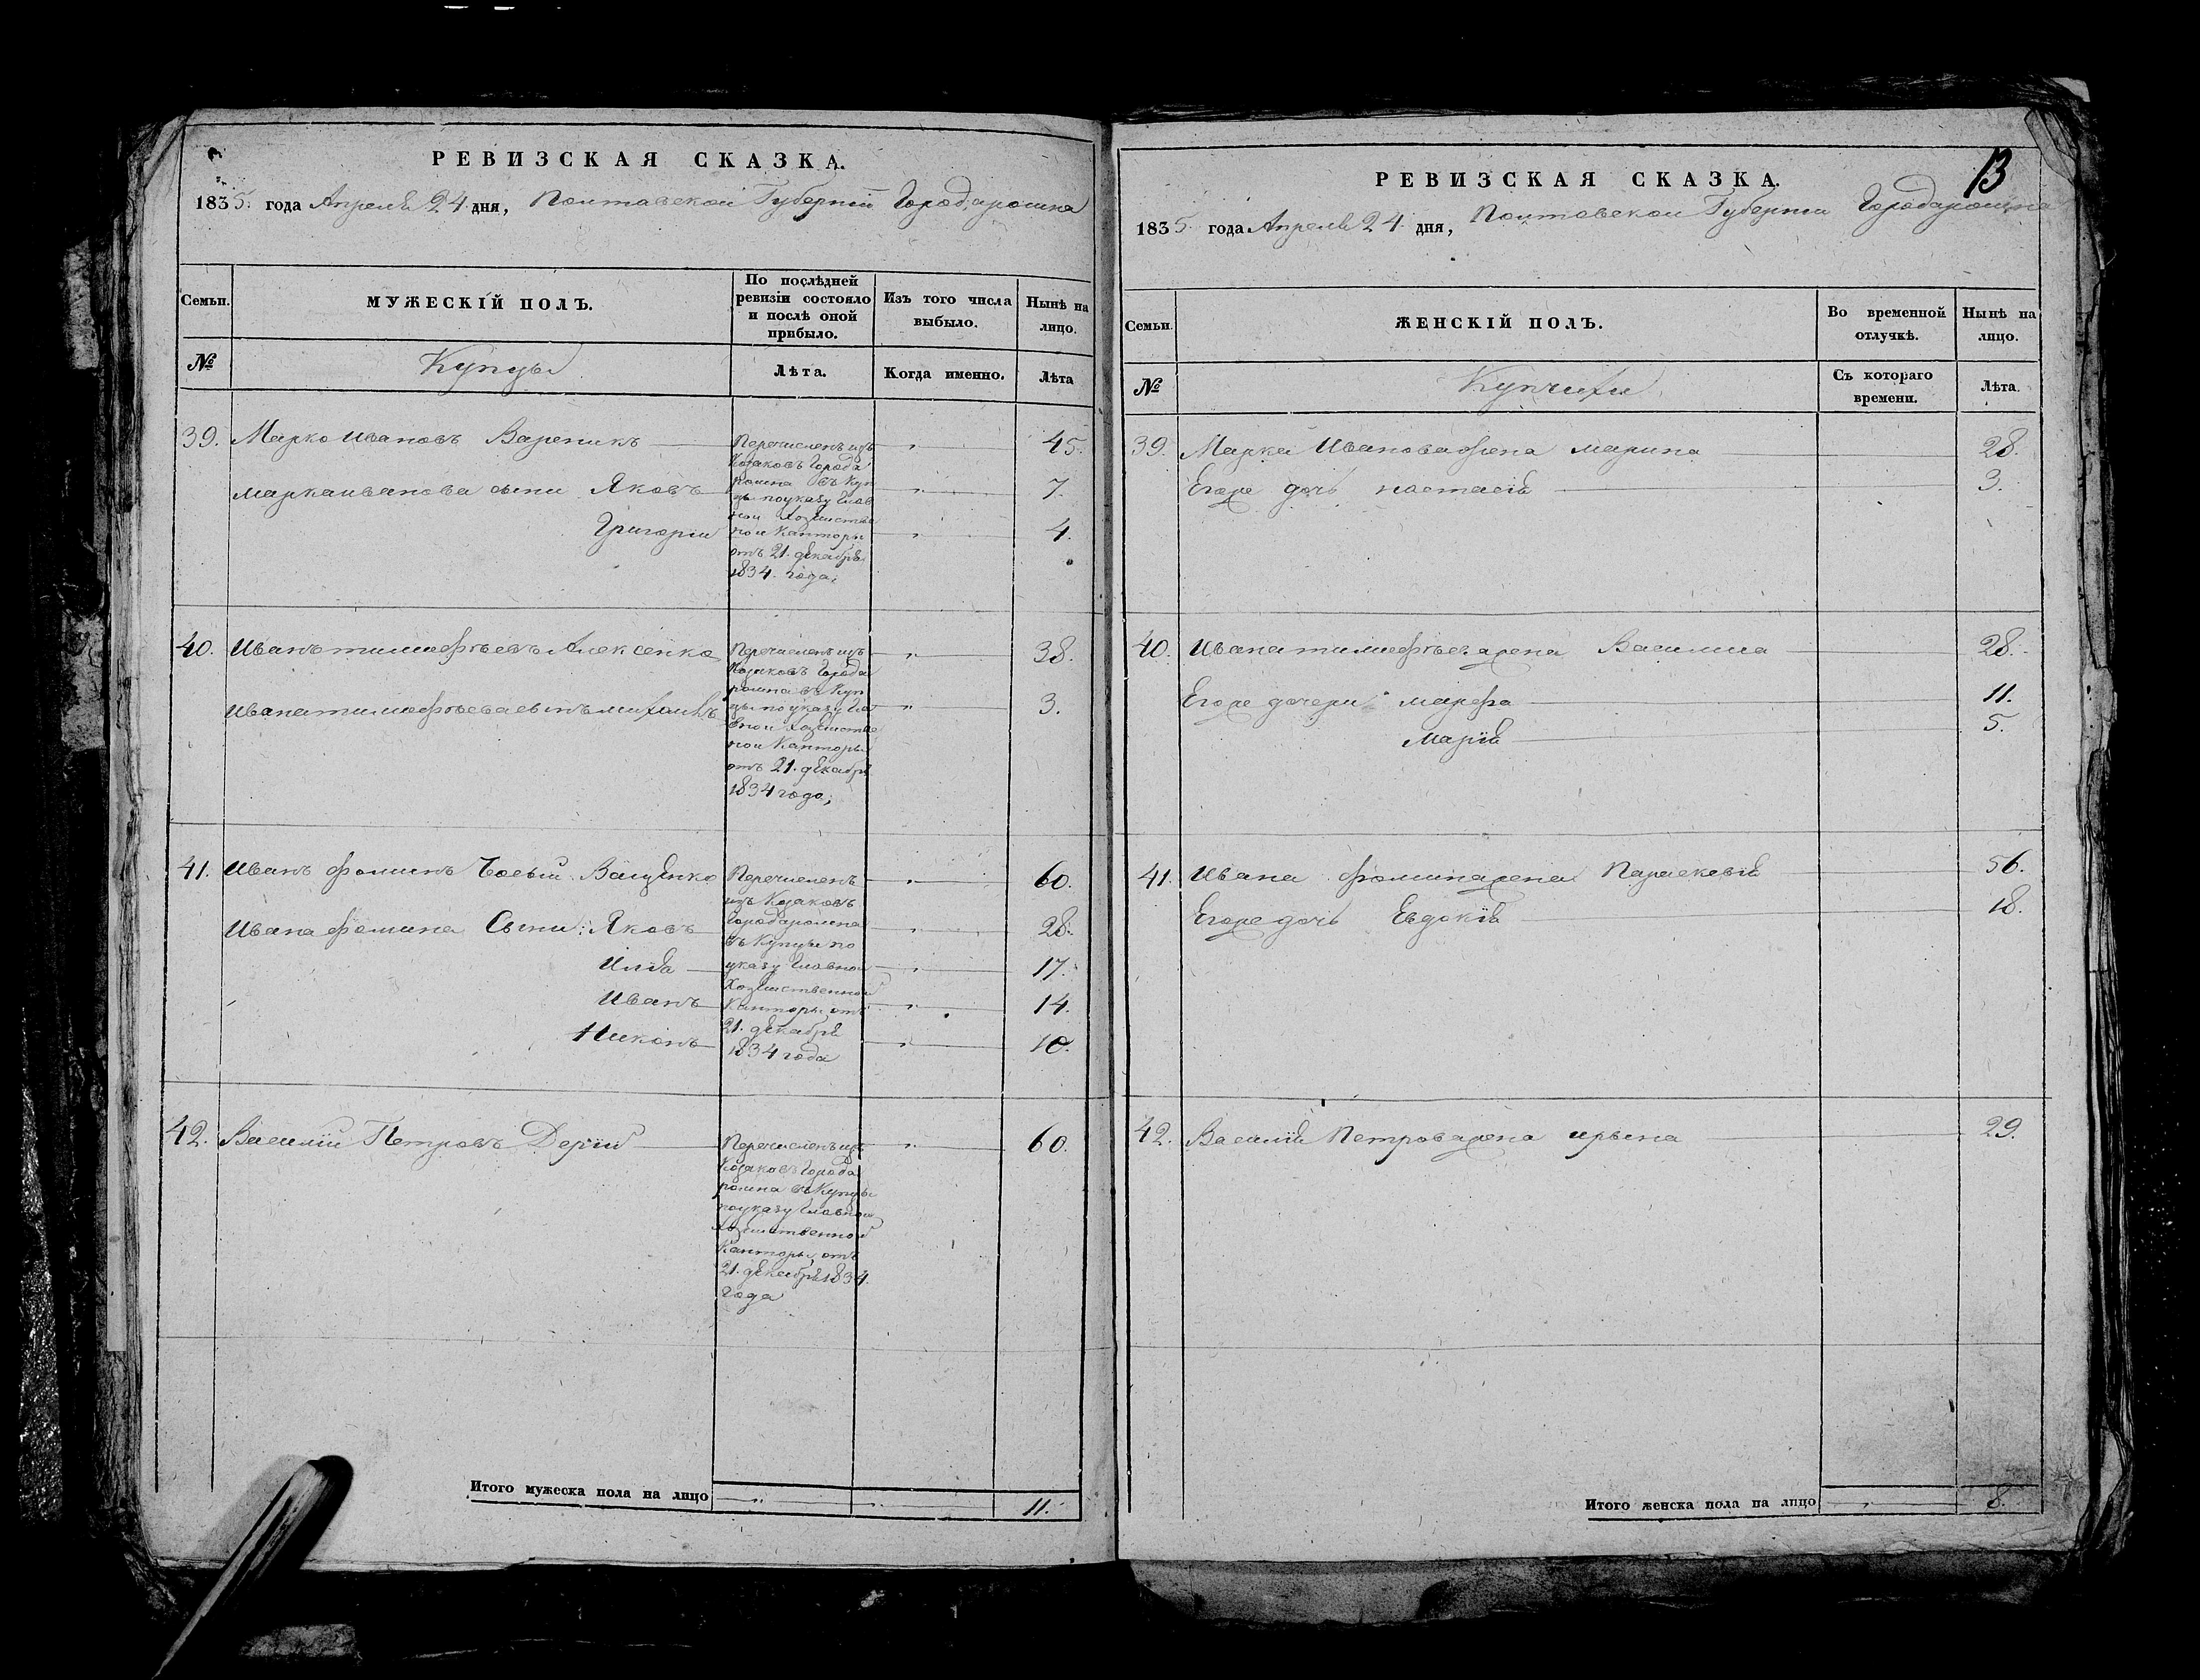 РЕВИЗСКАЯ СКАЗКА.
1835. года Апреля 24. дня, Полтавской Губернии Города ромна
Семьи.
МУЖЕСКІЙ ПОЛЪ.
По послѣдней ревизіи состояло и послѣ оной прибыло.
Изъ того числа выбыло.
Нынѣ на лицо.
№
Купцы
Лѣта.
Когда именно.
Лѣта
39. Марко Ивановъ Вареникъ 45.
Марка иванова сыни Яковъ 7.
Григорій 4.
Перечисленъ изъ
Козаковъ Города
ромна въ Куп
цы по указу Глав
ной Хозяистве
ной Канторы
отъ 21. декабря
1834. года;
40. Иванъ тимофѣевъ Алексенко 38.
Ивана тимофѣева сынъ михаилъ 3.
Перечисленъ изъ
Козаковъ Города
ромна въ Куп
цы по указу Гла
вной Хозяистве
ной Канторы
отъ 21. декабря
1834 года;
41. Иванъ фоминъ Ващенко 60.
Ивана фомина Сыни: Яковъ 28.
Илія 17.
Иванъ 14.
Никонъ 10.
Перечисленъ
изъ Козаковъ
Города ромна
въ Купцы по
указу Главной
Хозяиственной
Канторы отъ
21. декабря
1834 года
42. Василій Петровъ Дерій 60.
Перечисленъ изъ
Козаковъ Города
ромна въ Купцы
по указу Главной
Хозяиственной
Канторы отъ
21. декабря 1834.
года
Итого мужеска пола на лицо 11.
13
РЕВИЗСКАЯ СКАЗКА.
1835. года Апреля 24. дня, Полтавской Губернии Города ромна
Семьи.
ЖЕНСКІЙ ПОЛЪ.
Во временной отлучкѣ.
Нынѣ на лицо.
№
Купчихи
Съ котораго времени.
Лѣта.
39. Марка Иванова жена марина 28.
Егоже дочь настасія 3.
40. Ивана тимофѣева жена Василиса 28.
Егоже дочери марфа 11.
Марія 5.
41. Ивана фомина жена Параскевія 56.
Егоже дочь Евдокія 18.
42. Василія Петрова жена ирына 29.
Итого женска пола на лицо 8.